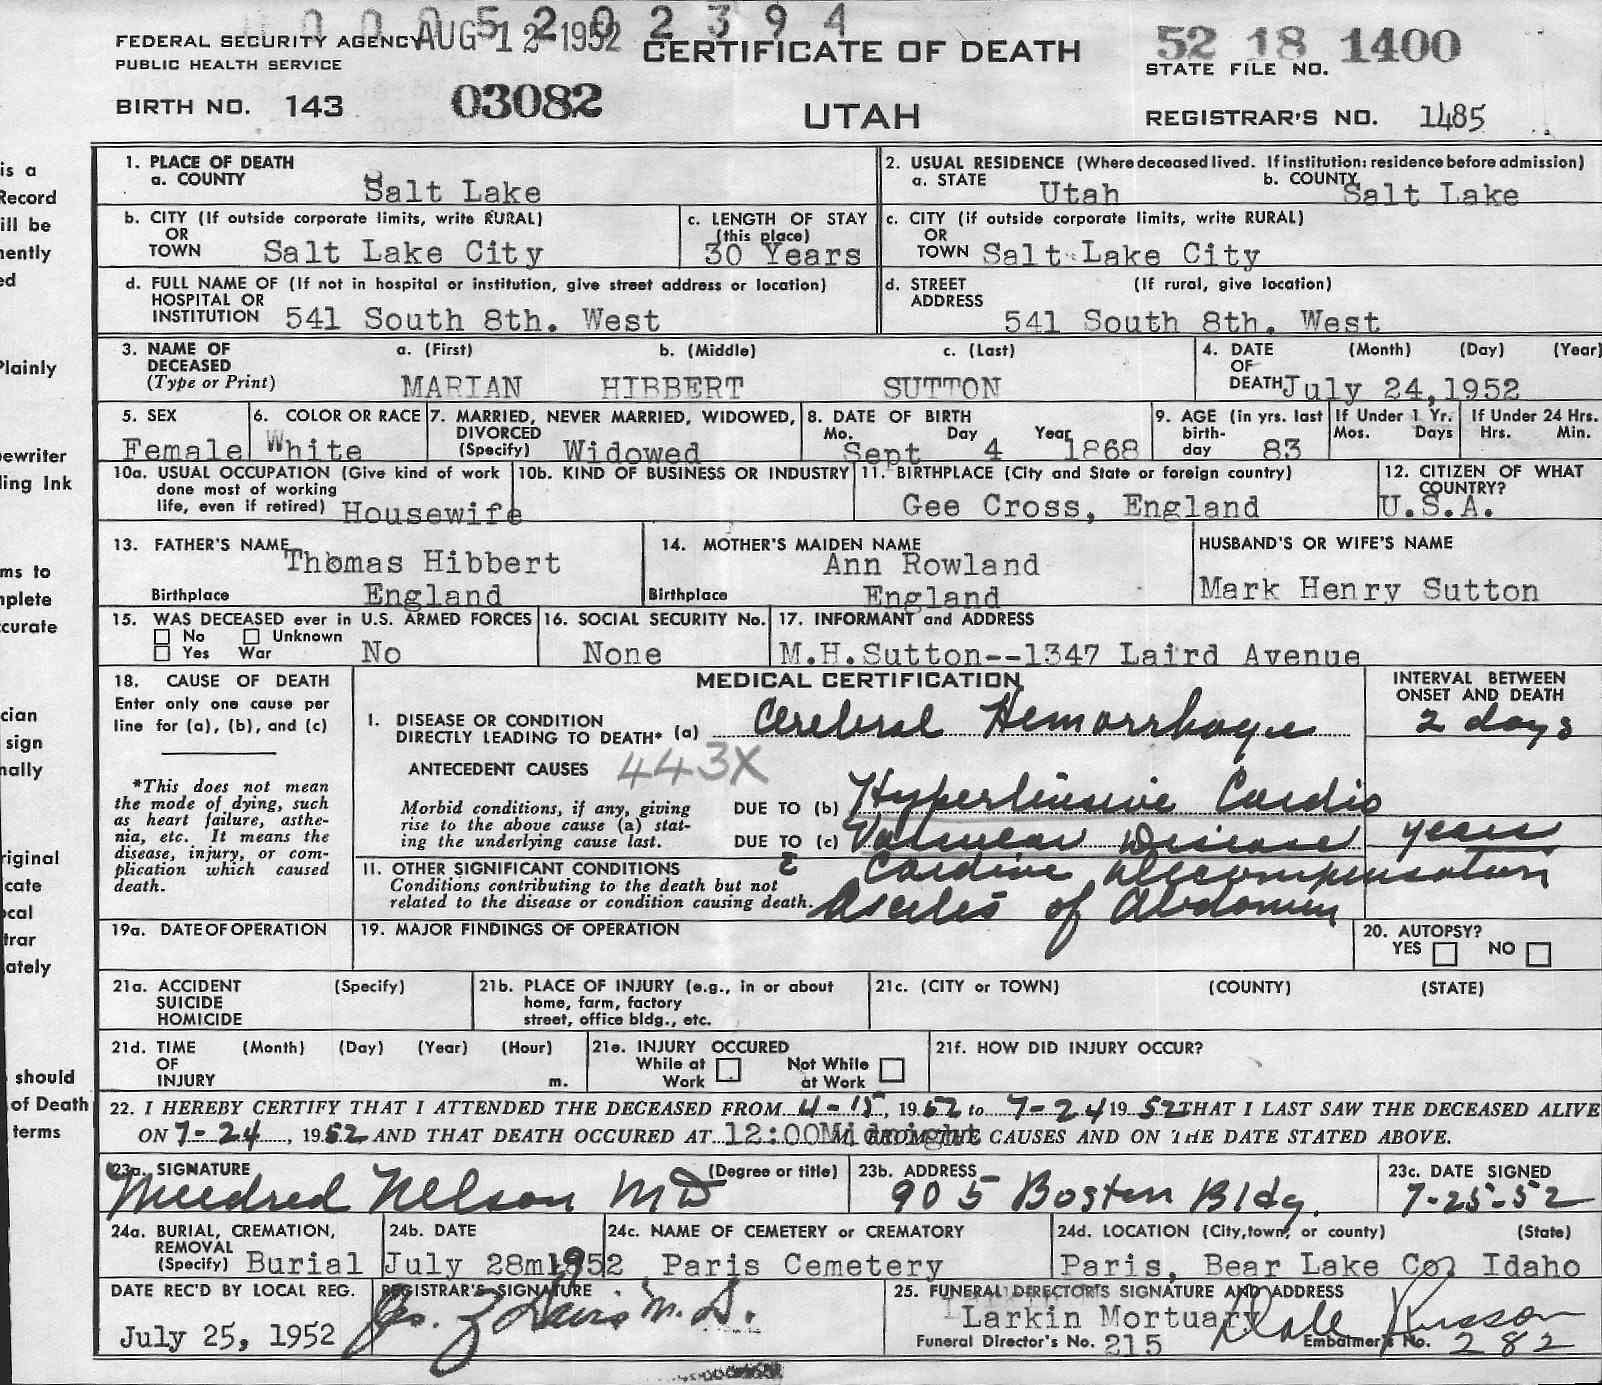 0 0 0 5 2 0 2 3 9 4
FEDERAL SECURITY AGENCY AUG 12 1952 CERTIFICATE OF DEATH 52 18 1400
PUBLIC HEALTH SERVICE STATE FILE NO.
BIRTH NO. 143 03082 UTAH REGISTRAR'S NO. 1485
1. PLACE OF DEATH 2. USUAL RESIDENCE (Where deceased lived. If institution: residence before admission)
a. COUNTY Salt Lake a. STATE Utah b. COUNTY Salt Lake
b. CITY (If outside corporate limits, write RURAL) c. LENGTH OF STAY c. CITY (if outside corporate limits, write RURAL)
OR (this place) OR
TOWN Salt Lake City 30 Years TOWN Salt Lake City
d. FULL NAME OF (If not in hospital or institution, give street address or location) d. STREET (If rural, give location)
HOSPITAL OR ADDRESS
INSTITUTION 541 South 8th. West 541 South 8th. West
3. NAME OF a. (First) b. (Middle) c. (Last) 4. DATE (Month) (Day) (Year)
DECEASED OF
(Type or Print) MARIAN HIBBERT SUTTON DEATH July 24,1952
5. SEX 6. COLOR OR RACE 7. MARRIED, NEVER MARRIED, WIDOWED, 8. DATE OF BIRTH 9. AGE (in yrs. last If Under 1 Yr. If Under 24 Hrs.
DIVORCED Mo. Day Year birth- Mos. Days Hrs. Min.
Female White (Specify) Widowed Sept 4 1868 day 83
10a. USUAL OCCUPATION (Give kind of work 10b. KIND OF BUSINESS OR INDUSTRY 11. BIRTHPLACE (City and State or foreign country) 12. CITIZEN OF WHAT
done most of working COUNTRY?
life, even if retired) Housewife Gee Cross, England U.S.A.
13. FATHER'S NAME Thomas Hibbert 14. MOTHER'S MAIDEN NAME Ann Rowland HUSBAND'S OR WIFE'S NAME
Birthplace England Birthplace England Mark Henry Sutton
15. WAS DECEASED ever in U.S. ARMED FORCES 16. SOCIAL SECURITY No. 17. INFORMANT and ADDRESS
No Unknown
Yes War No None M.H.Sutton--1347 Laird Avenue
18. CAUSE OF DEATH MEDICAL CERTIFICATION INTERVAL BETWEEN
Enter only one cause per ONSET AND DEATH
line for (a), (b), and (c) I. DISEASE OR CONDITION
DIRECTLY LEADING TO DEATH* (a) Cerebral Hemorrhage 2 days
ANTECEDENT CAUSES 443X
*This does not mean
the mode of dying, such Morbid conditions, if any, giving DUE TO (b) Hypertensive Cardio
as heart failure, asthe- rise to the above cause (a) stat-
nia, etc. It means the ing the underlying cause last. DUE TO (c) Valvular Disease years
disease, injury, or com- II. OTHER SIGNIFICANT CONDITIONS Cardiac decompensation
plication which caused Conditions contributing to the death but not
death. related to the disease or condition causing death. Ascites of Abdomen
19a. DATE OF OPERATION 19. MAJOR FINDINGS OF OPERATION 20. AUTOPSY?
YES NO
21a. ACCIDENT (Specify) 21b. PLACE OF INJURY (e.g., in or about 21c. (CITY or TOWN) (COUNTY) (STATE)
SUICIDE home, farm, factory
HOMICIDE street, office bldg., etc.
21d. TIME (Month) (Day) (Year) (Hour) 21e. INJURY OCCURED 21f. HOW DID INJURY OCCUR?
OF While at Not While
INJURY m. Work at Work
22. I HEREBY CERTIFY THAT I ATTENDED THE DECEASED FROM 4-15, 1952 to 7-24 1952 THAT I LAST SAW THE DECEASED ALIVE
ON 7-24, 1952 AND THAT DEATH OCCURED AT 12:00 Midnight M. FROM THE CAUSES AND ON THE DATE STATED ABOVE.
23a. SIGNATURE (Degree or title) 23b. ADDRESS 23c. DATE SIGNED
Mildred Nelson MD 905 Boston Bldg. 7-25-52
24a. BURIAL, CREMATION, 24b. DATE 24c. NAME OF CEMETERY or CREMATORY 24d. LOCATION (City, town, or county) (State)
REMOVAL
(Specify) Burial July 28m1952 Paris Cemetery Paris, Bear Lake Co Idaho
DATE REC'D BY LOCAL REG. REGISTRAR'S SIGNATURE 25. FUNERAL DIRECTOR'S SIGNATURE AND ADDRESS
July 25, 1952 M.D. Larkin Mortuary Dale Russon
Funeral Director's No. 215 Embalmer's No. 282
is a
Record
ill be
nently
ed
Plainly
ewriter
ling Ink
ms to
nplete
ccurate
cian
sign
nally
riginal
cate
ocal
trar
ately
should
of Death
terms